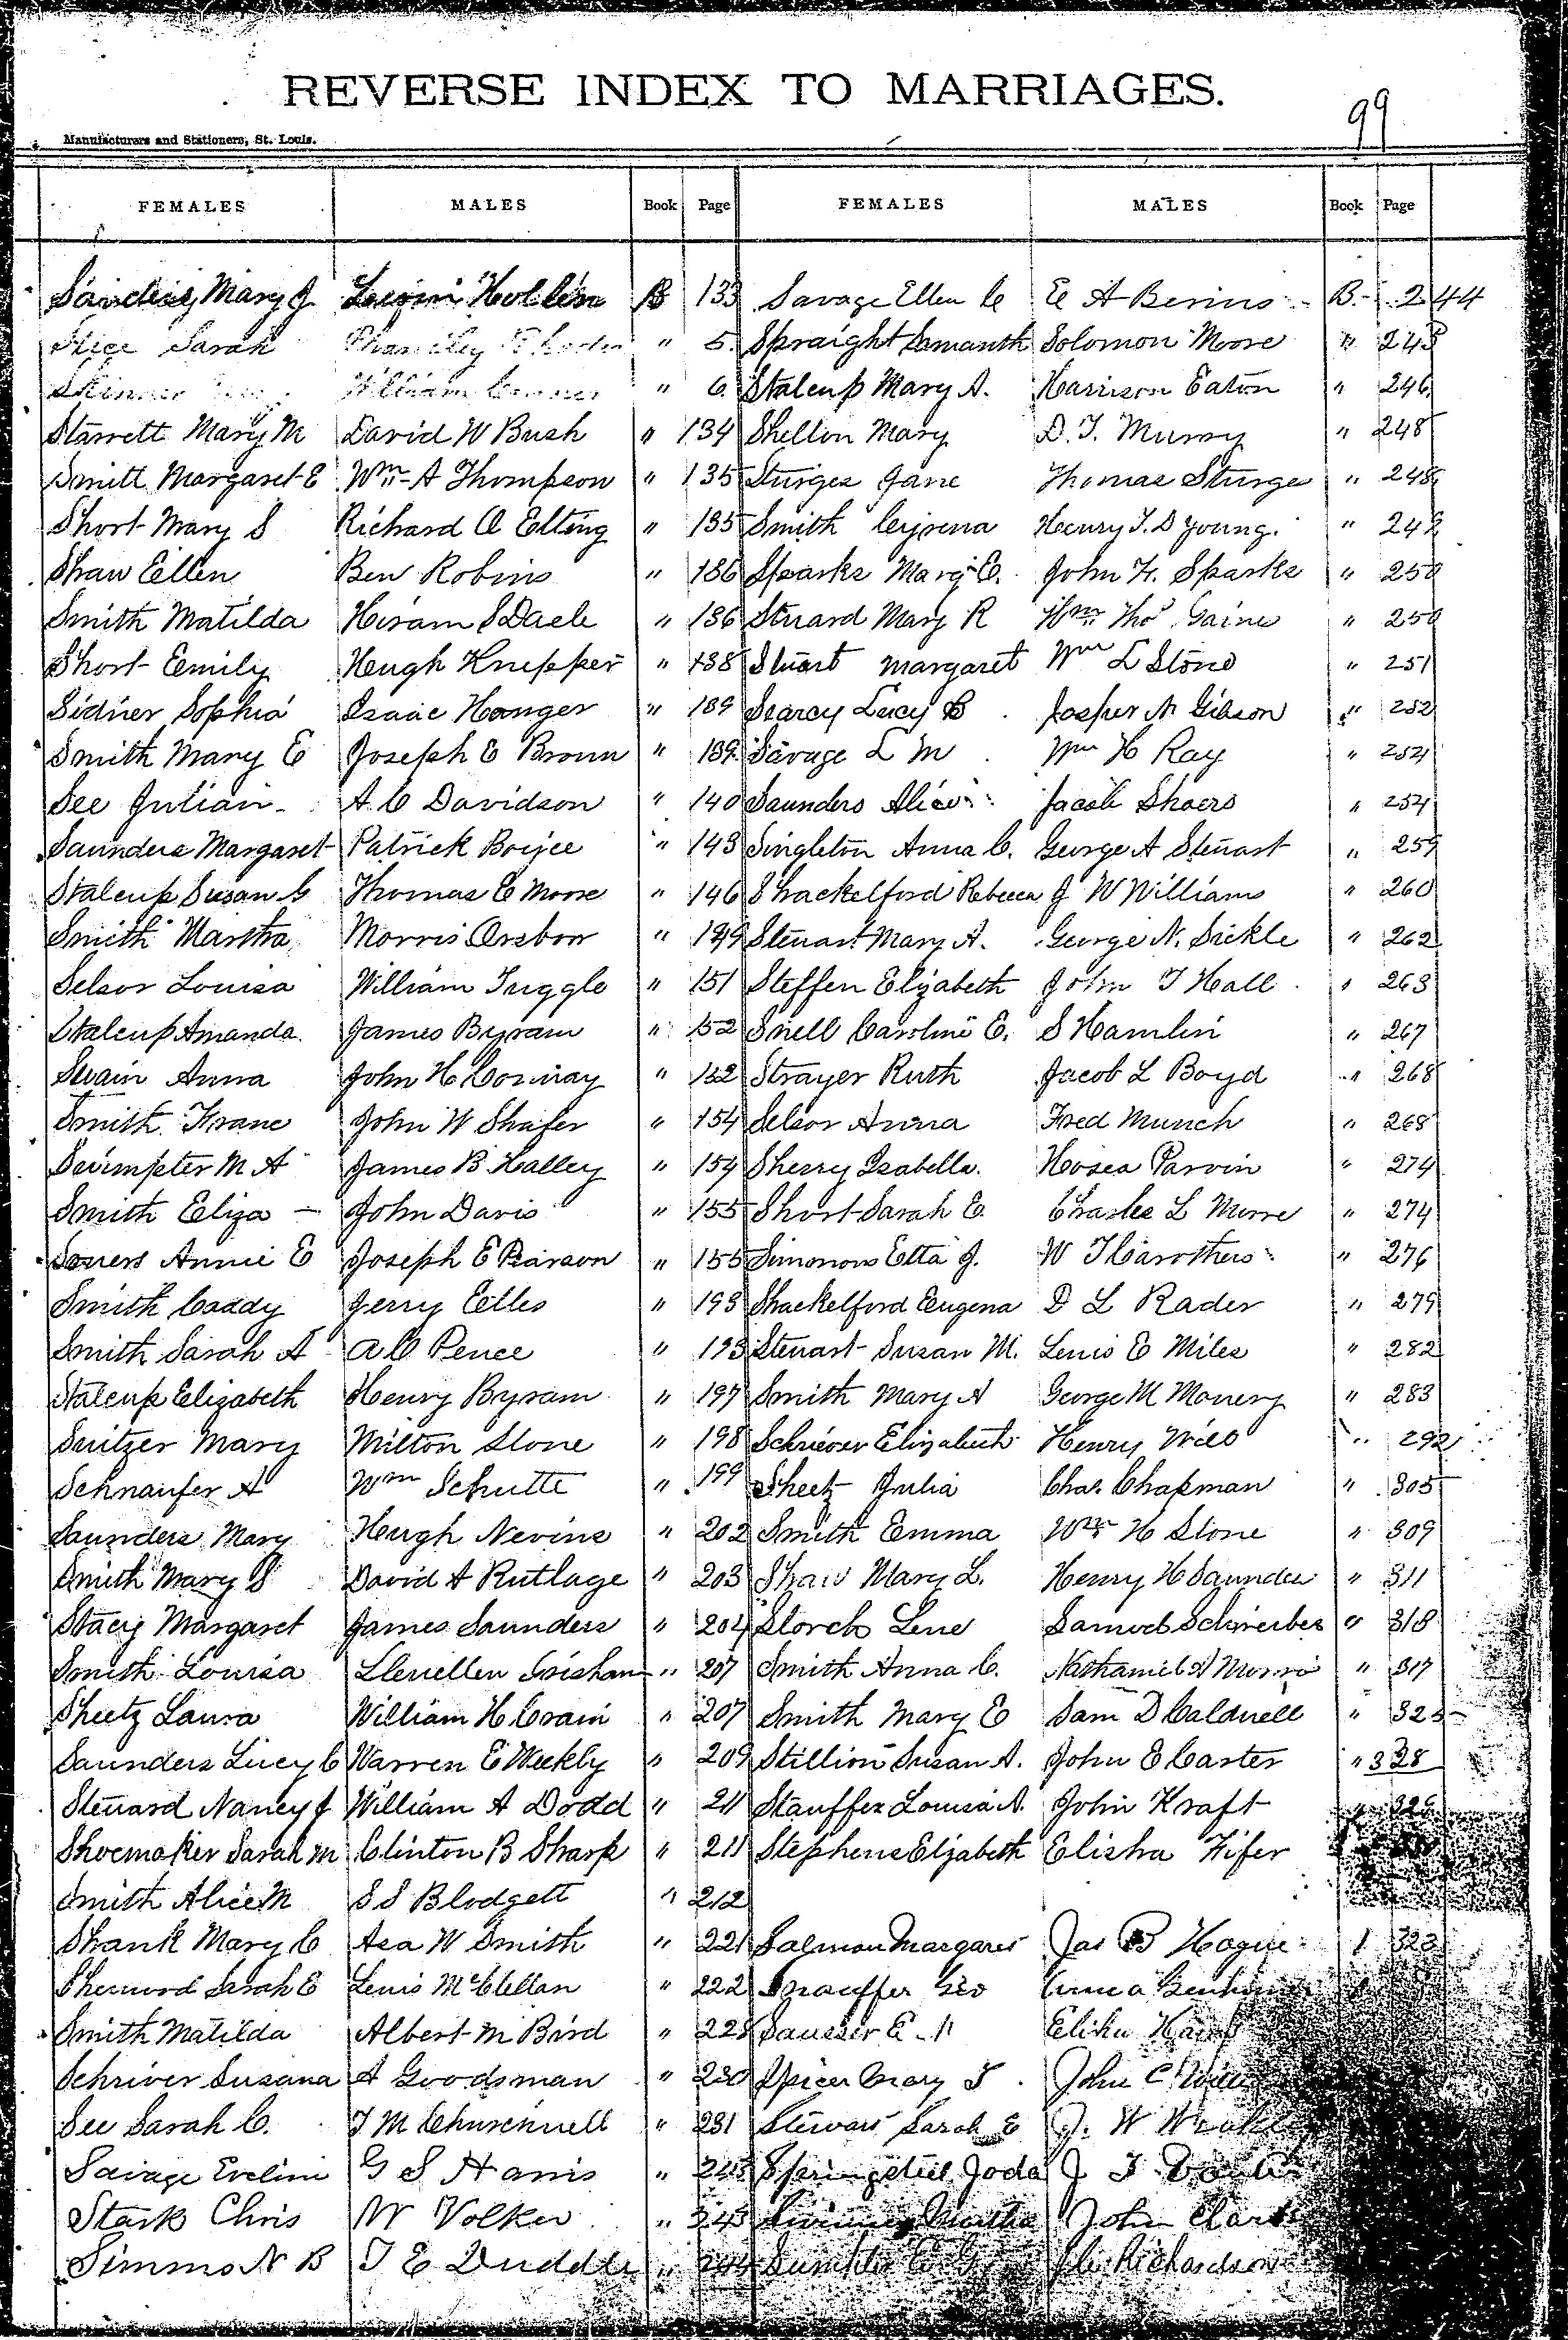 REVERSE INDEX TO MARRIAGES.
99
Manufacturers and Stationers, St. Louis.
FEMALES MALES Book Page FEMALES MALES Book Page
Mary J Hollin B 133 Savage Ellen C E A B. 244
Sarah " 5 Spraight Samanth Solomon Moore "
Skinner William " 6 Stalcup Mary A. Harrison Eaton " 246
Starrett Mary M David W Bush " 134 Shelton Mary D. T. Murray " 248
Smitt Margaret E Wm A Thompson " 135 Sturges Jane Thomas Sturge " 248
Short Mary S Richard O Elting " 135 Smith Henry T. D Young. "
Shaw Ellen Ben Robins " 136 Sparks Mary E. John H. Sparks " 250
Smith Matilda Hiram S " 136 Stuard Mary R Wm Thos Gaine " 250
Short Emily Hugh Knepper " 138 Stuart Margaret Wm L Stone " 251
Sidner Sophia Isaac Hanger " 139 Searcy Lucy B Jasper N Gibson " 252
Smith Mary E Joseph E Brown " 139 Savage L M Wm H Ray " 254
See Julian A. C Davidson " 140 Saunders Alice Jacob Shoers " 254
Saunders Margaret Patrick " 143 Singleton Anna C. George A Stewart " 259
Stalcup Susan G Thomas E Moore " 146 Shackelford Rebecca J W Williams " 260
Smith Martha Morris Orsbon " 149 Stewart Mary A. George N. Sickle " 262
Selsor Louisa William Tuggle " 151 Steffen Elizabeth John T Hall " 263
Stalcup Amanda James Byram " 152 Snell Caroline E. S Hamlin " 267
Swain Anna John H Conway " 152 Strayer Ruth Jacob L Boyd " 268
Smith Franc John W Shafer " 154 Selsor Anna Fred Munch " 268
Swimpter M A James B Halley " 154 Sherry Isabella. Hosea Parvin " 274
Smith Eliza John Davis " 155 Short Sarah E. Charles L Morre " 274
Annie E Joseph E Pearson " 155 Simonons Etta J. W T Carothers " 276
Smith Caddy Jerry Elles " 193 Shackelford Eugena D L Rader " 279
Smith Sarah A A C Pence " 193 Stewart Susan M. Lewis E Miles " 282
Stalcup Elizabeth Henry Byram " 197 Smith Mary A George M Mowery " 283
Switzer Mary Milton Stone " 198 Schriever Elizabeth Henry " 292
Schnaufer A Wm Schutte " 199 Sheetz Julia Chas. Chapman " 305
Saunders Mary Hugh Nevins " 202 Smith Emma Wm H Stone " 309
Smith Mary S David A Rutlage " 203 Shaw Mary L. Henry H Saunders " 311
Stacy Margaret James Saunders " 204 Storch Lene Samuel Schreiber " 318
Smith Louisa Llewellen Grisham " 207 Smith Anna C. Nathaniel A Morris " 317
Sheetz Laura William H Crain " 207 Smith Mary E Sam D Caldwell "
Saunders Lucy C Warren E Weekly " 209 Stillion Susan A. John E Carter " 328
Steward Nancy J William A Dodd " 211 Stauffer Louisa A. John Kraft
Shoemaker Sarah M Clinton B Sharp " 211 Stephens Elizabeth Elisha Fifer
Smith Alice M S S Blodgett " 212
Shank Mary C Asa W Smith " 221 Salmon Margaret Jas B Hague 1 323
Sherwood Sarah E Lewis McClellan " 222 Geo Anna
Smith Matilda Albert M Bird " 228 Sausser E Elihu
Schriver Susana A Goodsman " 230 Spicer Mary T John C
See Sarah C. T M Churchwell " 231 Stewart Sarah E J. W
Savage Eveline G S Harris " 243 Springsteel Joda J T
Stark Chris W Volker " 243 Martha John Clark
Simms N B T E " 244 Richardson